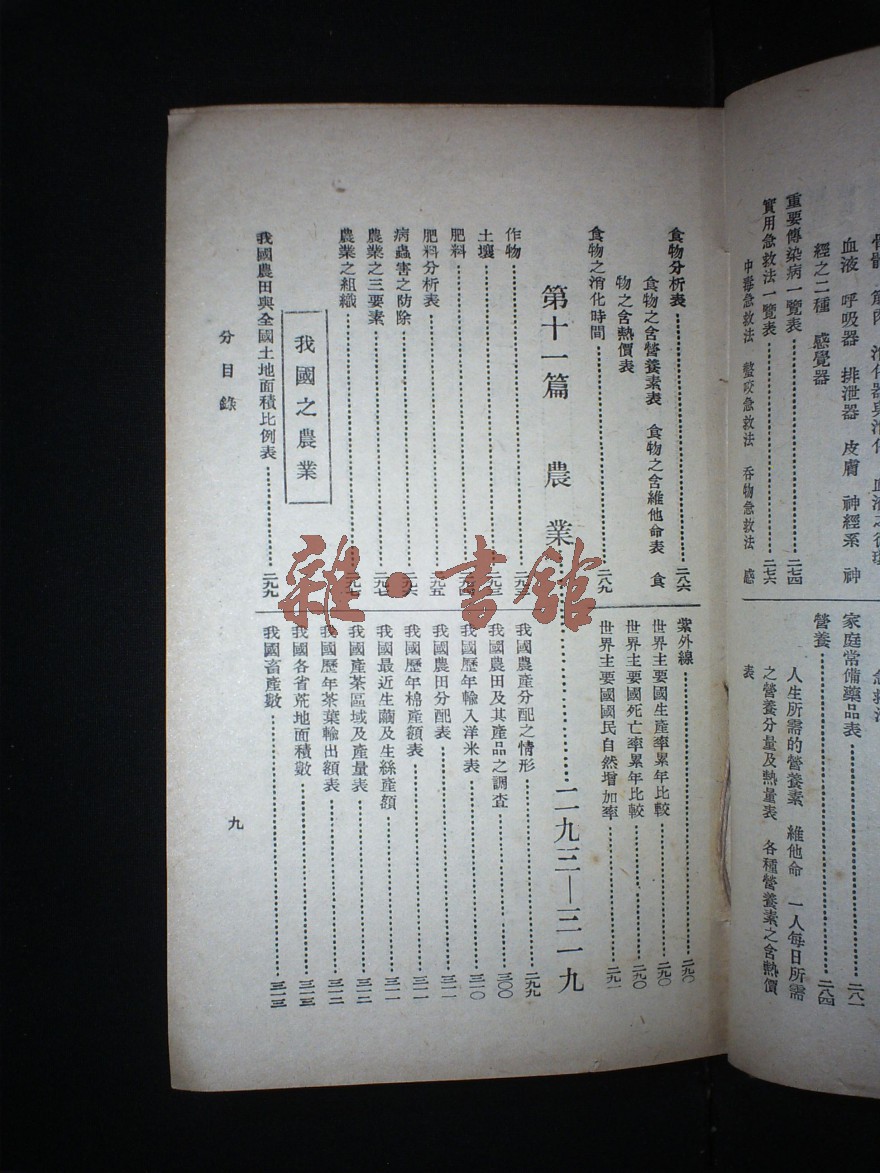 重要傳染病一覽表……二七四
實用急救法一覽表……二七六
中毒急救法 螫咬急救法 吞物急救法 感
血液 呼吸器 排泄器 皮膚 神經系 神
經之二種 感覺器
家庭常備藥品表……二八一
營養……二八四
人生所需的營養素 維他命 一人每日所需
之營養分量及熱量表 各種營養素之含熱價
表
食物分析表……二八六
食物之含營養素表 食物之含維他命表 食
物之含熱價表
食物之消化時間……二八九
紫外線……二九〇
世界主要國生產率累年比較……二九〇
世界主要國死亡率累年比較……二九〇
世界主要國國民自然增加率……二九一
第十一篇 農業……二九三—三一九
作物
土壤
肥料
肥料分析表……二九五
病蟲害之防除……二九六
農業之三要素……二九七
農業之組織……二九七
我國之農業
我國農田與全國土地面積比例表……二九九
我國農產分配之情形……二九九
我國農田及其產品之調查……三〇〇
我國歷年輸入洋米表……三一〇
我國農田分配表……三一一
我國歷年棉產額表……三一一
我國最近生繭及生絲產額……三一一
我國產茶區域及產量表……三一二
我國歷年茶葉輸出額表……三一二
我國各省荒地面積數……三一三
我國畜產數……三一三
分目錄
九
雜·書館